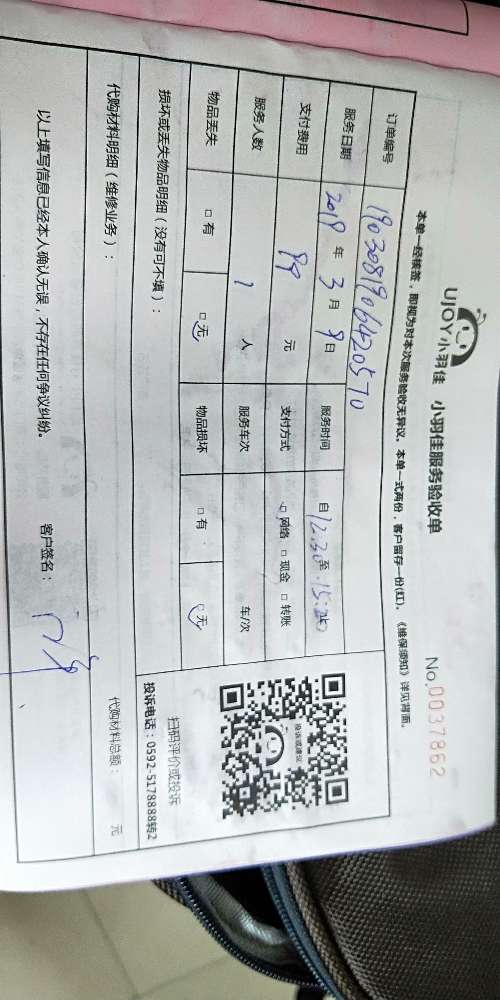 UJOY小羽佳 小羽佳服务验收单
No.0037862
本单一经接签，即视为对本次服务验收无异议。本单一式两份，客户留存一份(红)。《维保须知》详见背面。
订单编号 1903081906420570
服务日期 2019 年 3 月 9 日 服务时间 自12.30至
支付费用 99 元 支付方式 网络 现金 转账
服务人数 1 人 服务车次 车/次
物品丢失 有 无 物品损坏 有 无
投诉或建议
扫码评价或投诉
投诉电话：0592-5178888转2
损坏或丢失物品明细（没有可不填）：
代购材料明细（维修业务）：
代购材料总额： 元
以上填写信息已经本人确认无误，不存在任何争议纠纷。 客户签名：